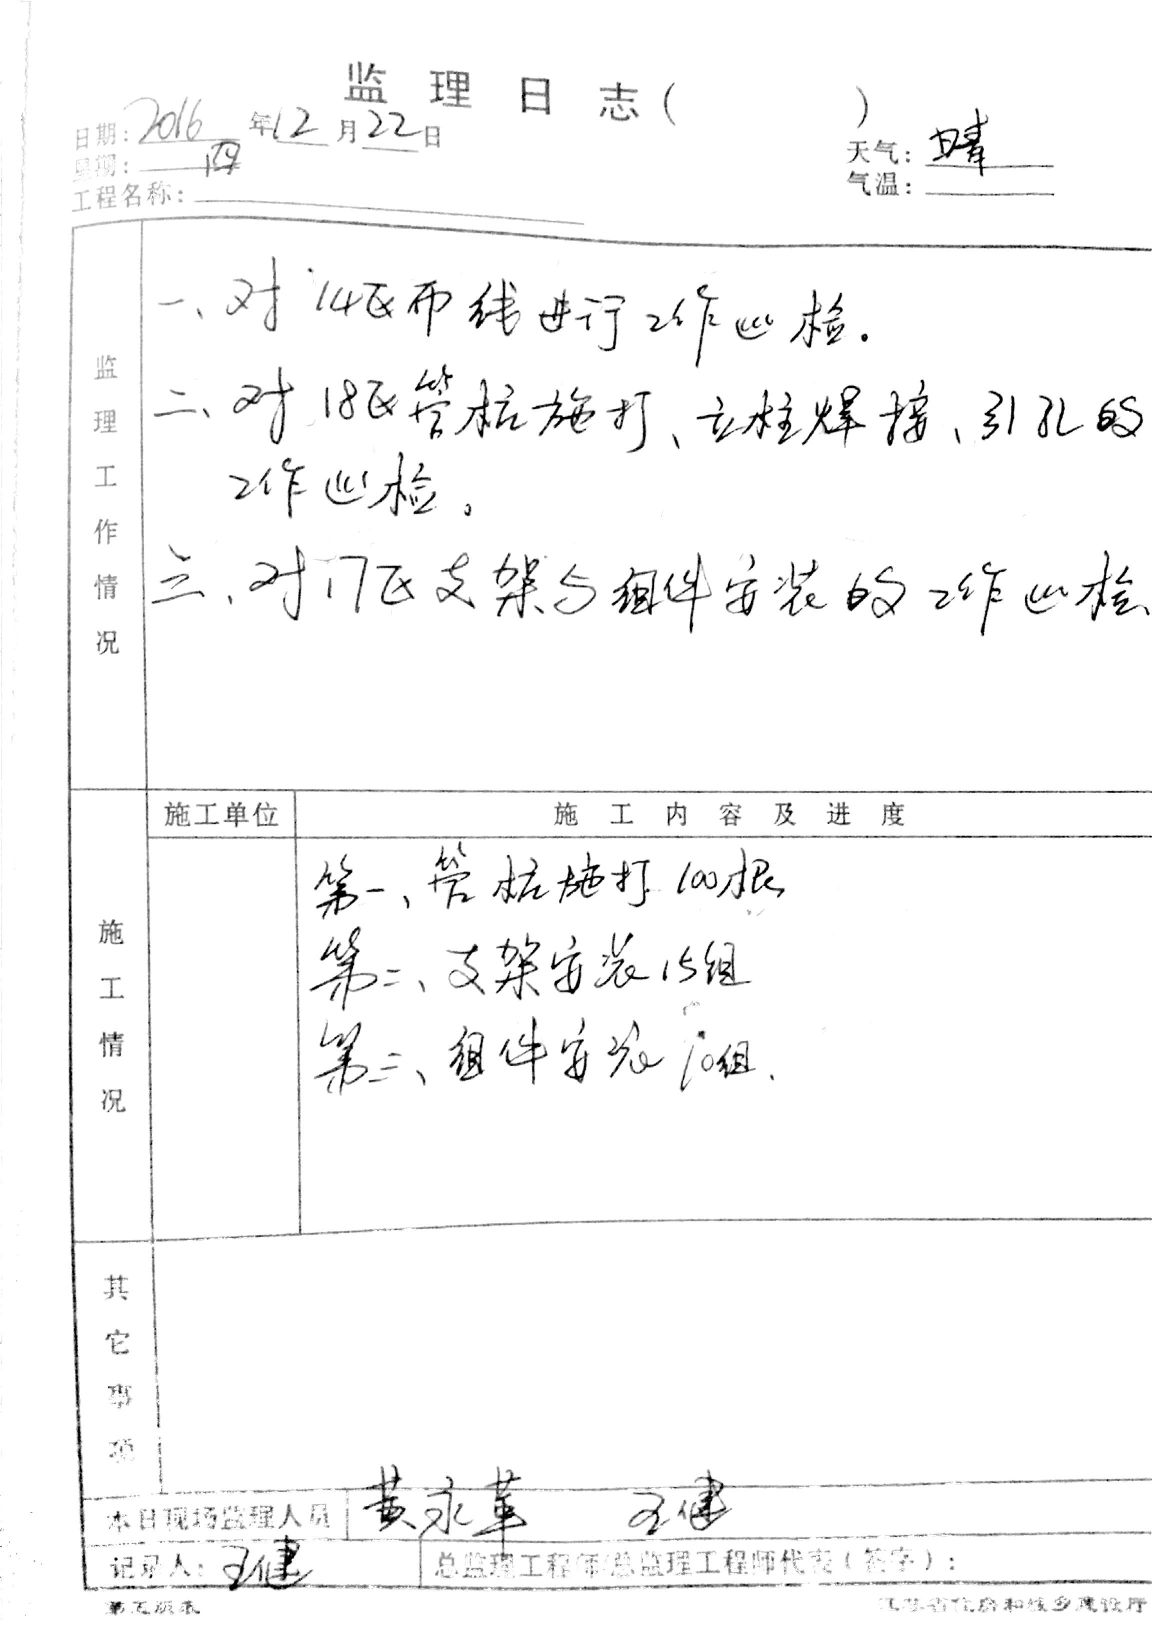 监理日志(          )
日期: 2016 年 12 月 22 日
星期: 四
天气: 晴
气温:
工程名称:
监理工作情况
一、对14区布线进行工作巡检.
二、对18区管桩施打、立柱焊接、引孔的
工作巡检。
三、对17区支架与组件安装的工作巡检、
施工单位
施工内容及进度
施工情况
第一、管桩施打100根
第二、支架安装15组
第三、组件安装10组.
其它事项
本日现场监理人员
黄永革 王健
记录人: 王健
总监理工程师/总监理工程师代表(签字):
第五版表
江苏省住房和城乡建设厅